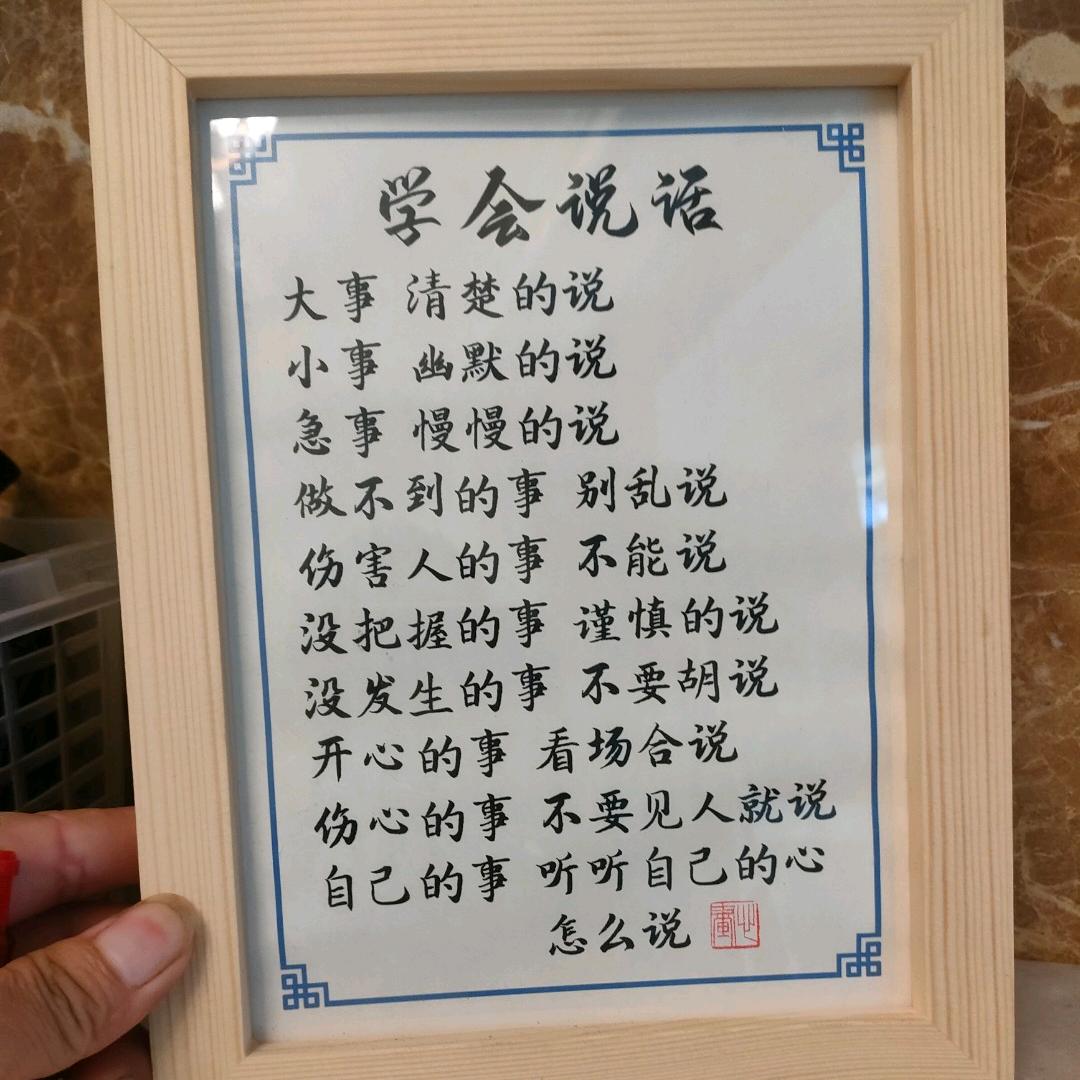 学会说话
大事 清楚的说
小事 幽默的说
急事 慢慢的说
做不到的事 别乱说
伤害人的事 不能说
没把握的事 谨慎的说
没发生的事 不要胡说
开心的事 看场合说
伤心的事 不要见人就说
自己的事 听听自己的心
怎么说